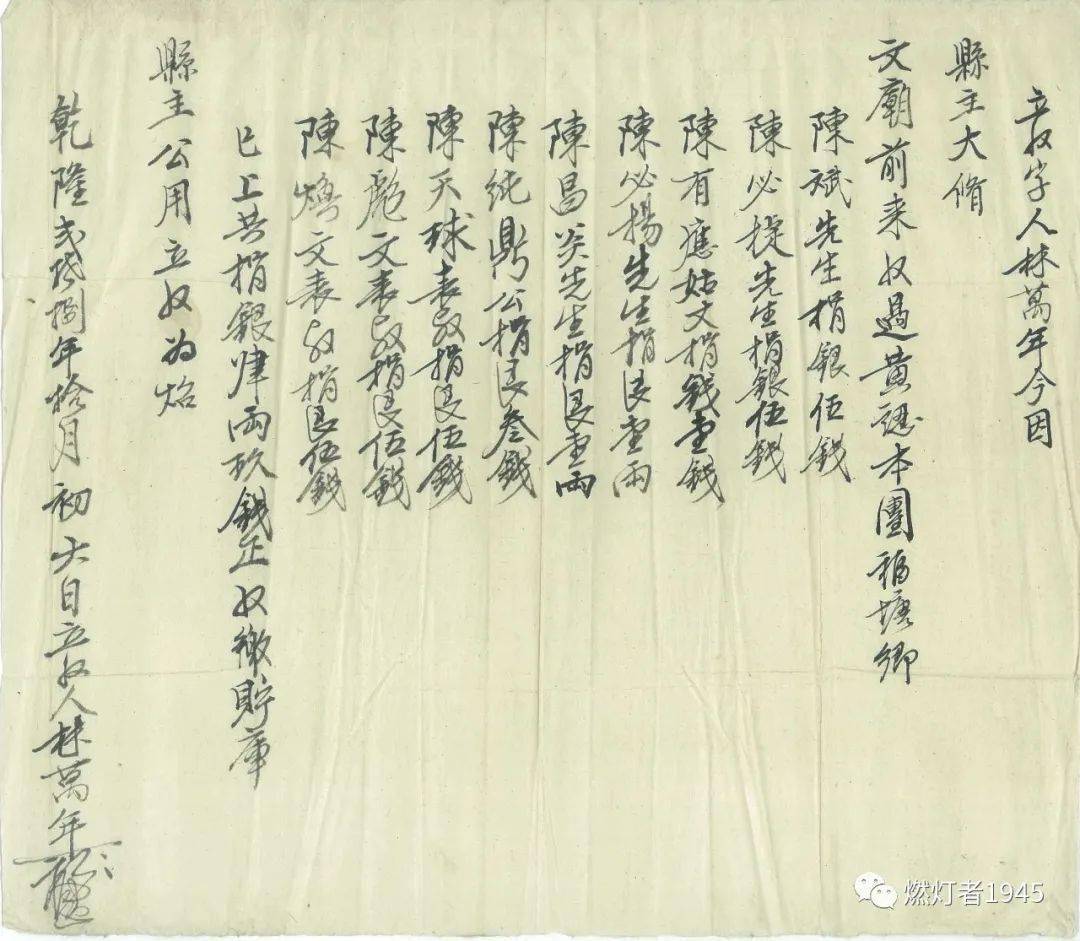 立收字人林萬年今因
縣主大脩
文廟前来收過黄認本團福塘鄉
陳斌先生捐銀伍錢
陳必提先生捐銀伍錢
陳有應姑丈捐錢壹錢
陳必揚先生捐艮壹兩
陳昌炎先生捐艮壹兩
陳純鼎公捐艮叁錢
陳天球表叔捐艮伍錢
陳彪文表叔捐艮伍錢
陳文表叔捐艮伍錢
已上共捐銀肆兩玖錢正收繳貯庫
縣主公用立收為炤
乾隆弍拾捌年拾月初六日立收人林萬年
燃灯者1945